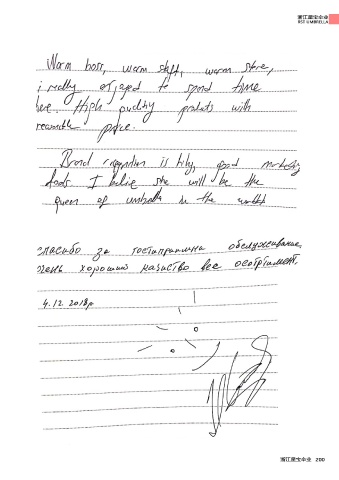 浙江星宝伞业
RST UMBRELLA
Warm boss, warm staff, warm store,
i really enjoyed to spend time
here. High quality products with
reasonable price.
Brand recognition is high, good marketing
I belive she will be the
queen of umbrella in the world
спасибо за гостиприимна обслуживание,
очень хороший качиство все
4.12.2018р
浙江星宝伞业 200